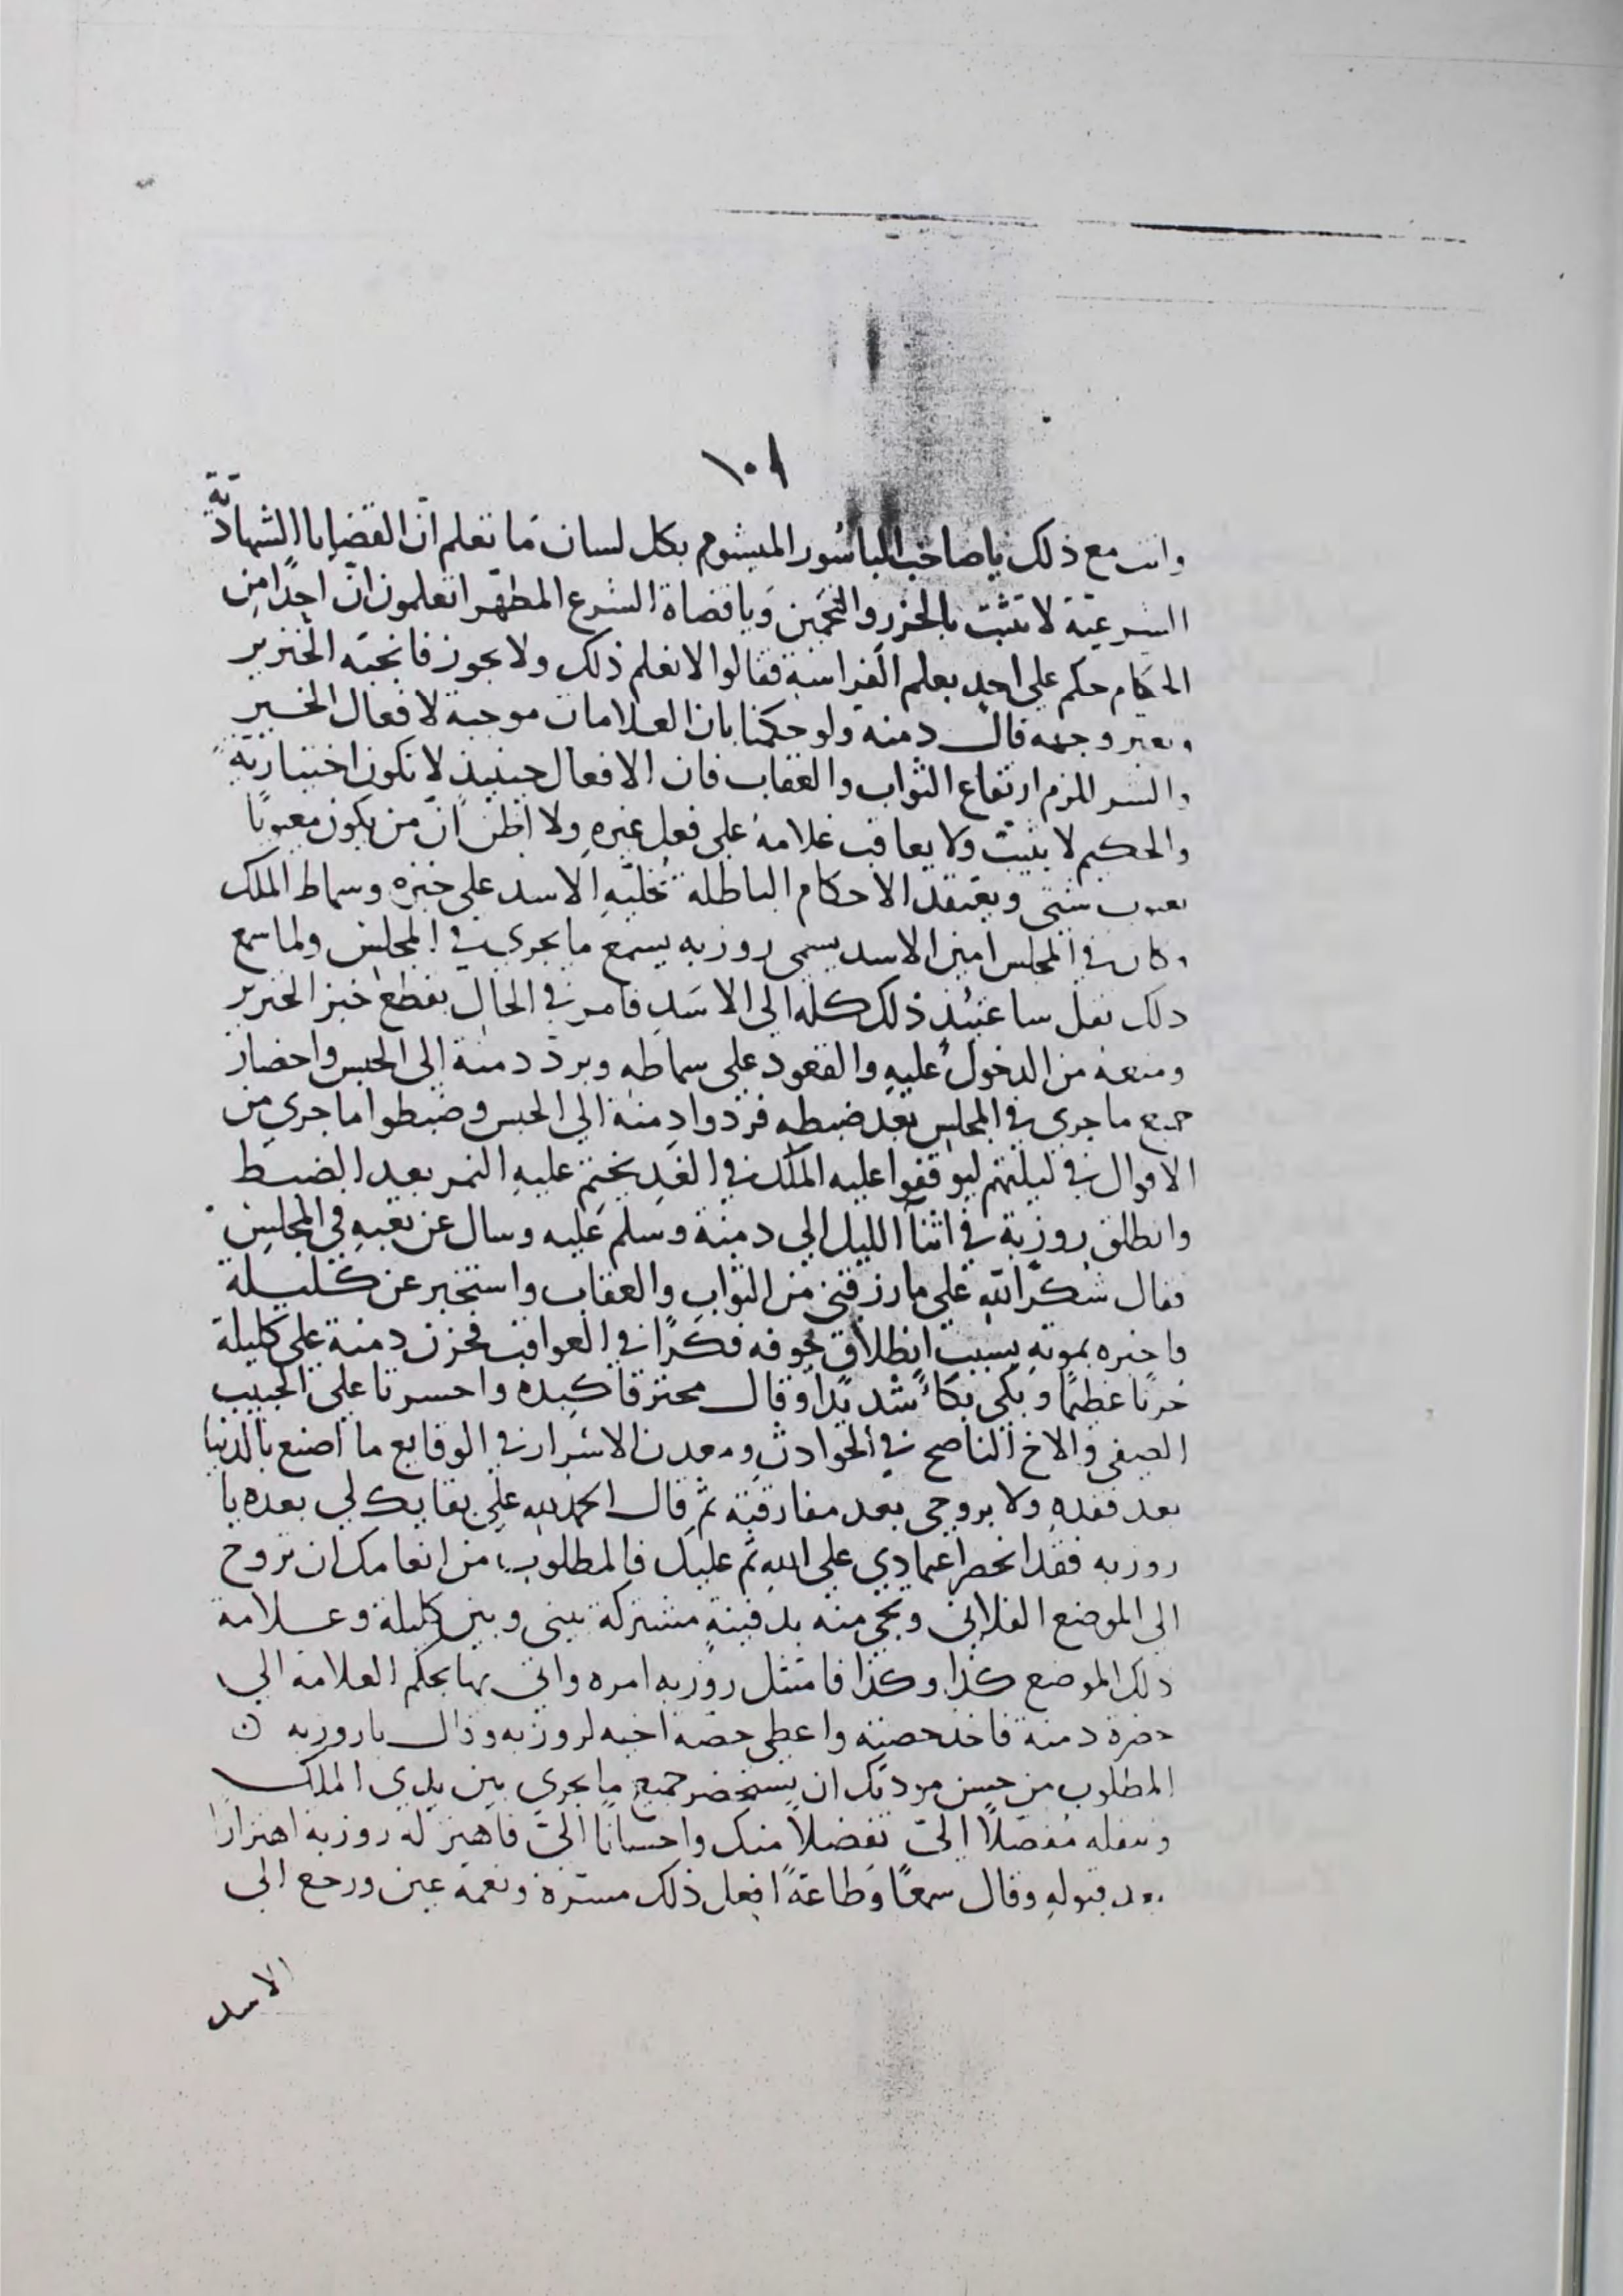 ١٠٨
وانت مع ذلك يا صاحب الباسُور المبشوم بكل لسان مَا تعلم انّ القضايا الشهاديّة
الشرعيّة لا تثبت بالحزر والتخمين وَيا قضاة الشرع المطهّر اتعلمون انّ احدًا من
الحكام حكم على احدٍ بعلم الفراسة فقالوا لا نعلم ذلك ولا يجوز فانجبَه الخنزير
وتغير وجهه قال دمنة ولو حكمنا بان العلامات موجبة لافعال الخير
والشر للزم ارتفاع الثواب والعقاب فان الافعال حينيذٍ لا تكون اختياريّةً
والحكيم لا يثيب ولا يعاقب غلامهُ على فعل غيرهِ ولا اظنّ انّ من يكون معيوبًا
بعيوب شتى ويعتقد الاحكام الباطلة تخليّهِ الاسد على خبزه وسماط الملك
وكان في المجلس امين الاسد يسمى روزبه يسمع ما يجري في المجلس ولما سمع
ذلك نقل ساعتيُذٍ ذلك كله الى الاسَدِ فامر في الحال بقطع خبز الخنزير
ومنعه من الدخول عليهِ والقعود على سماطه وبردّ دمنة الى الحبس واحضار
جميع ما جرى في المجلس بعد ضبطهِ فردّوا دمنة الى الحبس وضبطوا ما جرى من
الاقوال في ليلتهم ليوقفوا عليه الملك في الغدِ بختم عليهِ النمر بعد الضبط
وانطلق روزبة في اثنآ الليل الى دمنة وسلم عليه وسال عن تعبهِ في المجلس
فقال شكرًا للهِ على ما رزقني من الثواب والعقاب واستخبر عن كليلة
واخبره بموتهِ بسبب انطلاق جوفه فكرًا في العواقب فحزن دمنة على كليلة
حزنًا عظيمًا وبكى بكآءً شديدًا وقال محترقا كبده واحسرتا على الحبيب
الصفى والاخ الناصح في الحوادث ومعدن الاسرار في الوقايع ما اصنع بالدنيا
بعد فقدهِ ولا بروحى بعد مفارقته ثم قال الحمد لله على بقايك لي بعده يا
روزبه فقد انحصر اعتمادي على اللهِ ثم عليك فالمطلوب من انعامك ان تروح
الى الموضع الفلاني وتجي منه بدفينةٍ مشتركة بيني وبين كليلة وعلامة
ذلك الموضع كذا وكذا فامتثل روزبه امره واتى بها بحكم العلامة الى
حضرة دمنة فاخذ حصته واعطى حصة اخيه لروزبه وقال يا روزبه
المطلوب من حسن مودتك ان تستحضر جميع ما يجري بين يدي الملك
وتنقله مُفصّلًا اليّ تفضلًا منك واحسانًا اليّ فاهتز له روزبه اهتزازًا
بعد قبولهِ وقال سمعًا وطاعةً افعل ذلك مسرّة ونعمة عين ورجع الى
الاسد